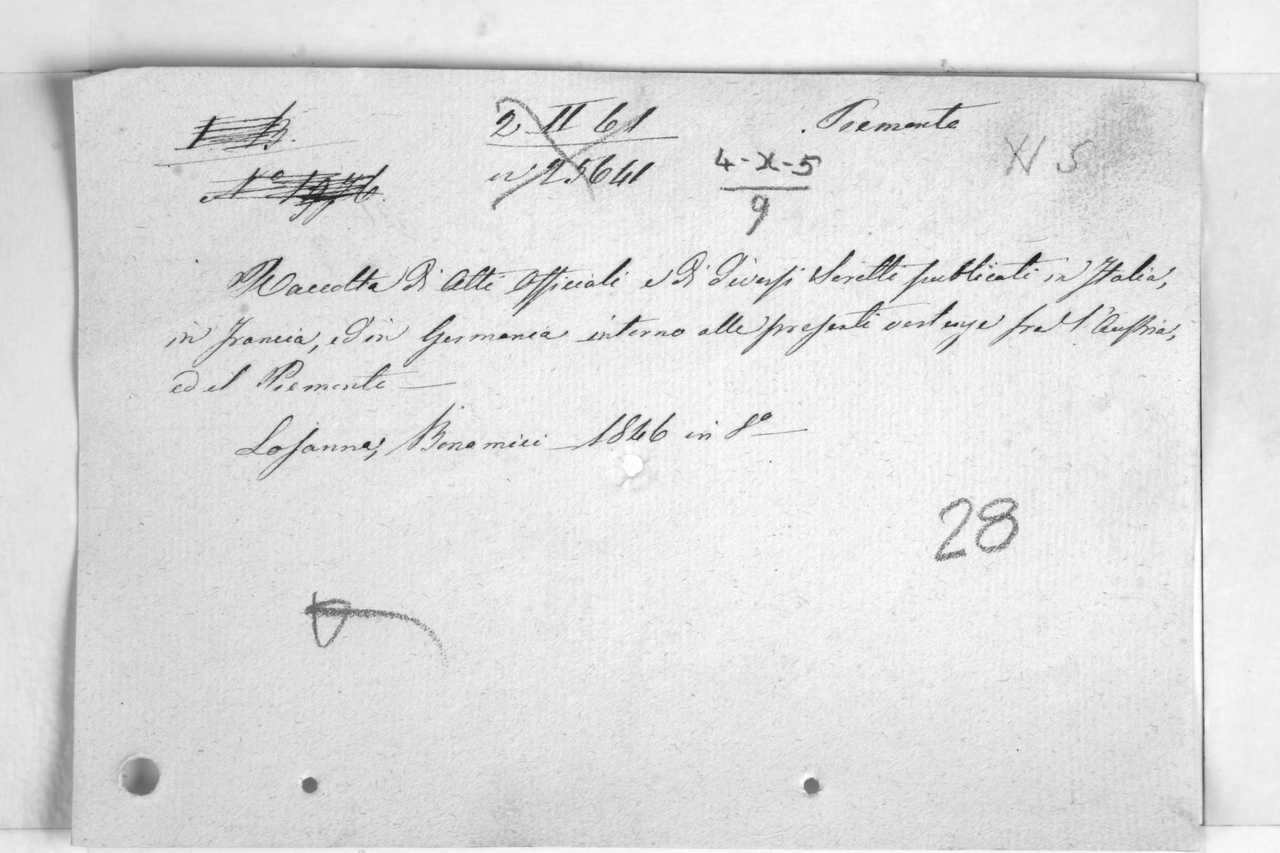 1 B. 2 II 61 Piemonte
N° 1926. n° 25641 4-X-5 N 5
9
Raccolta di Atti Officiali e di diversi Scritti publicati in Italia,
in Francia, ed in Germania intorno alle presenti vertenze fra l'Austria,
ed il Piemonte —
Losanna, Bonamici — 1846 in 8° —
28